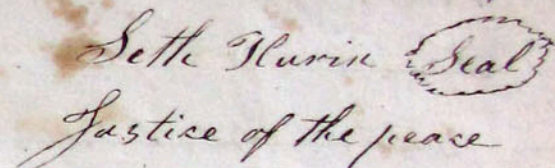 Seth Hurin Seal
Justice of the peace